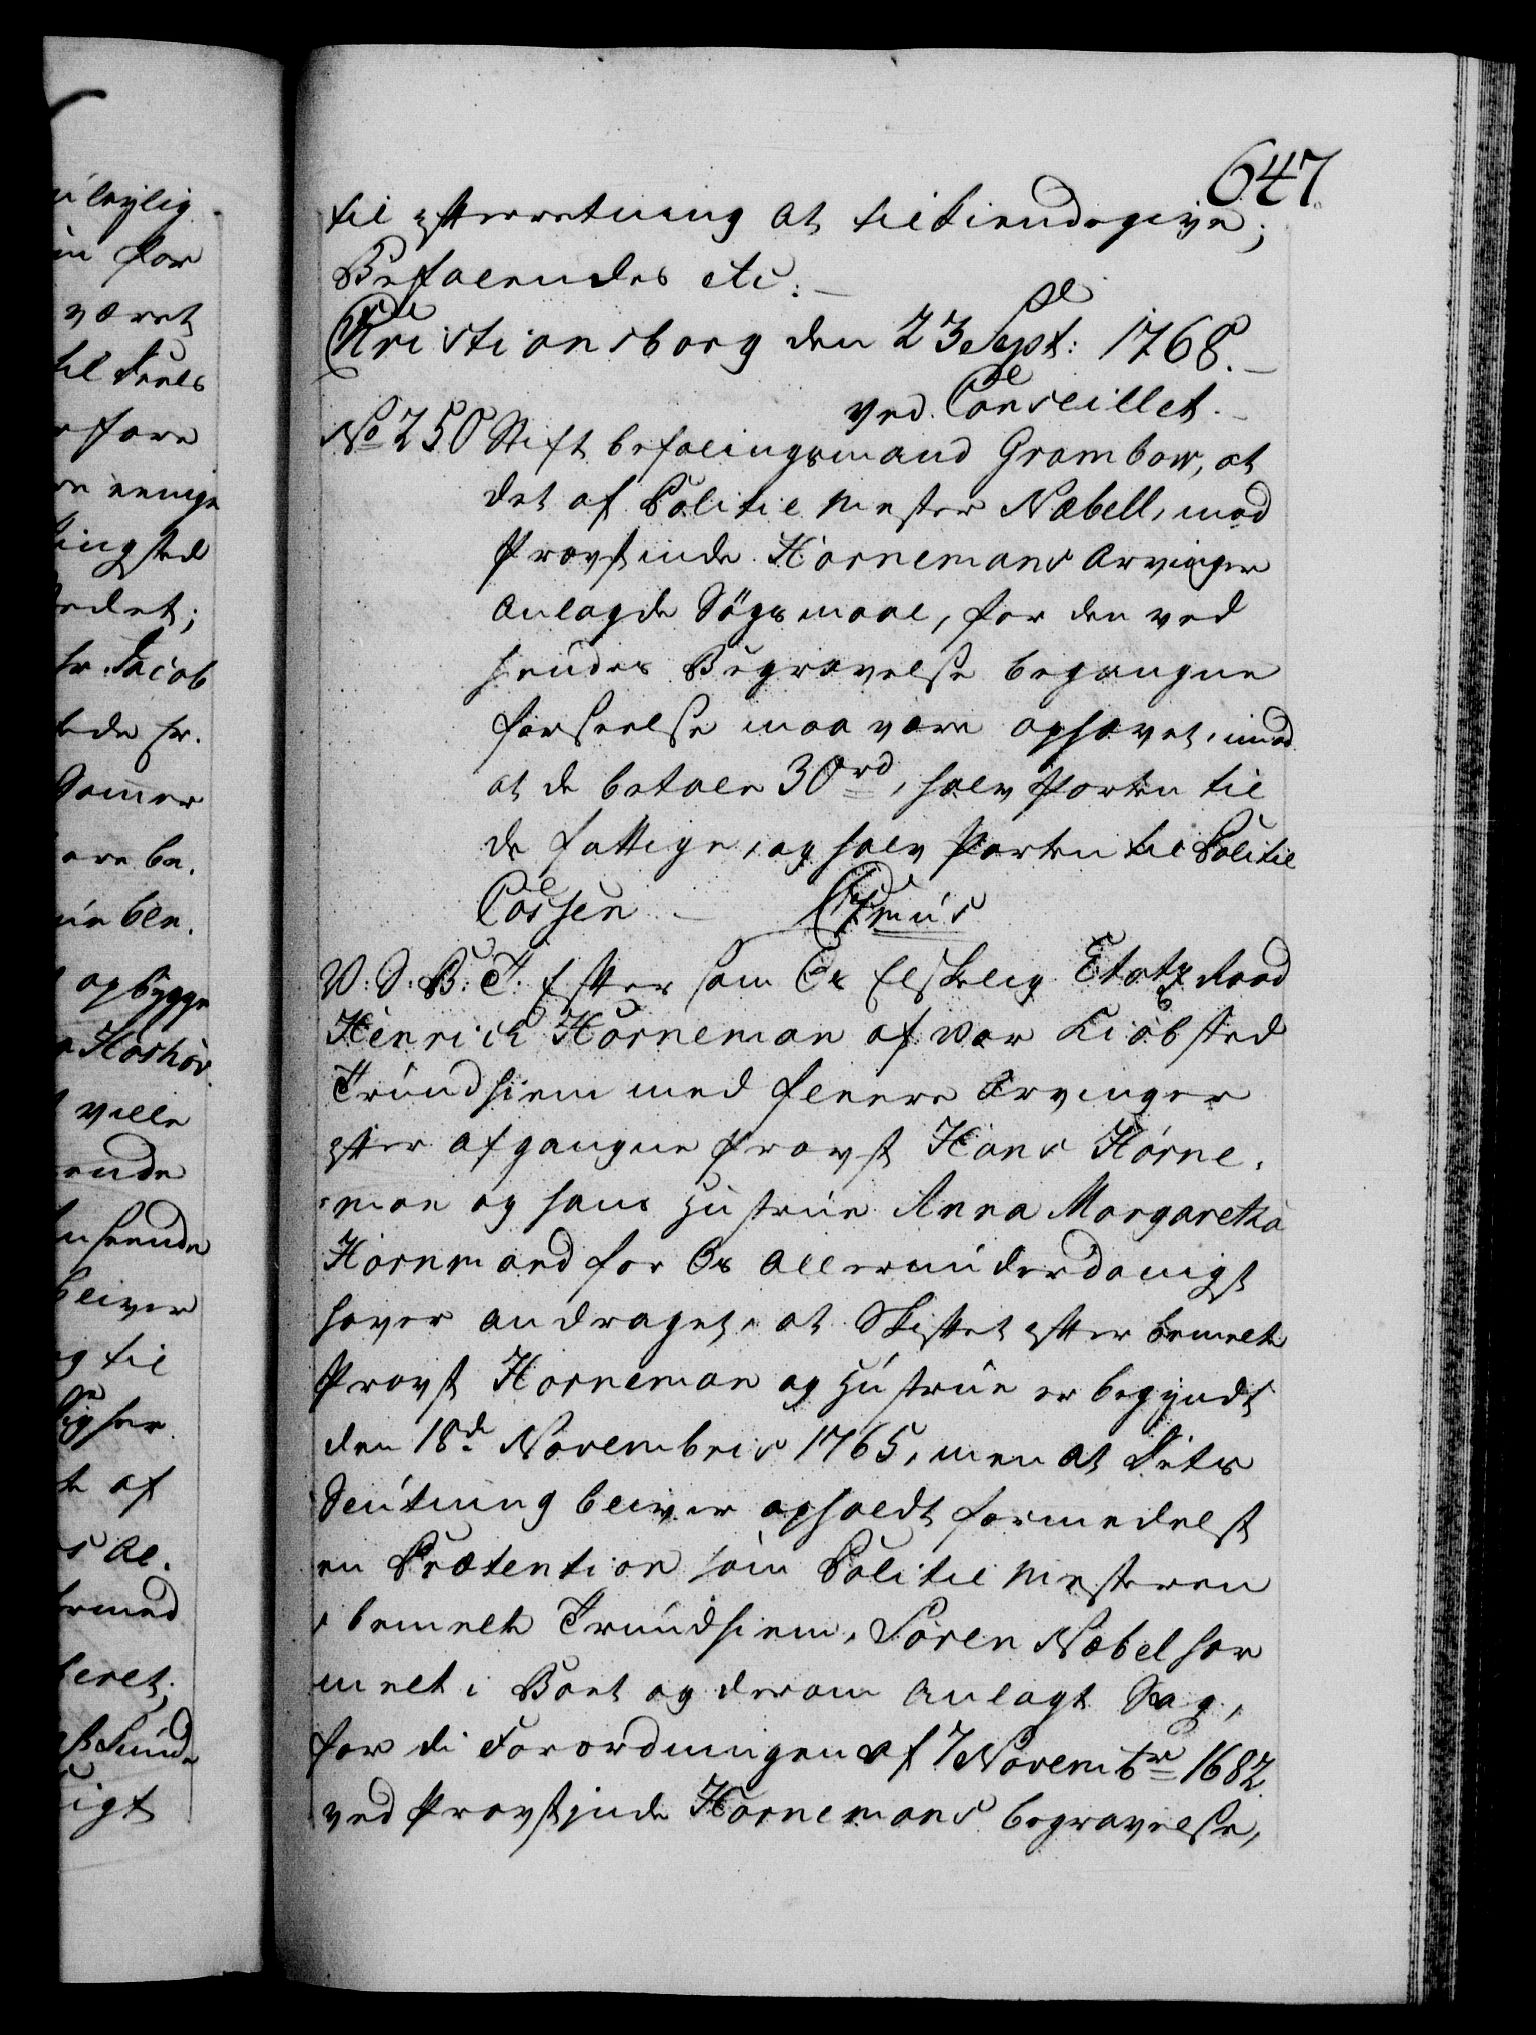 647
til efterretning at tilkiendegive;
Befalendes etc:
Christiansborg den 23 Sept: 1768.
ved Conseillet.
No 250 Stift befalingsmand Grambow, at
det af Politie Mester Næbell, mod
Provstinde Hornemans Arvinger
anlagde Søgsmaal, for den ved
hendes Begravelse begangne
forseelse maa være ophævet, imod
at de betale 30 rd, halv Parten til
de fattige, og halv Parten til Politie
Cassen.
V: S: B: T: Efter som Os Elskelig Etatz Raad
Henrich Horneman af vor Kiøbsted
Trundhiem med fleere Arvinger
efter afgangne Provst Hans Horne-
man og hans Hustrue Anna Margaretha
Hornmand for Os allerunderdanigst
haver andraget, at Skiftet efter bemelte
Provst Horneman og Hustrue er begyndt
den 18de Novembris 1765, men at dets
Slutning bliver opholdt formedelst
en Prætention som Politie Mesteren
i bemelte Trundhiem, Søren Næbel har
melt i Boet og derom anlagt Sag,
for di Forordningen af 7 Novembr 1682
ved Provstinde Hornemans begravelse,
leylig
for
været
til
fare
eenige
Jacob
hr.
opbygge
ville
bliver
og til
af